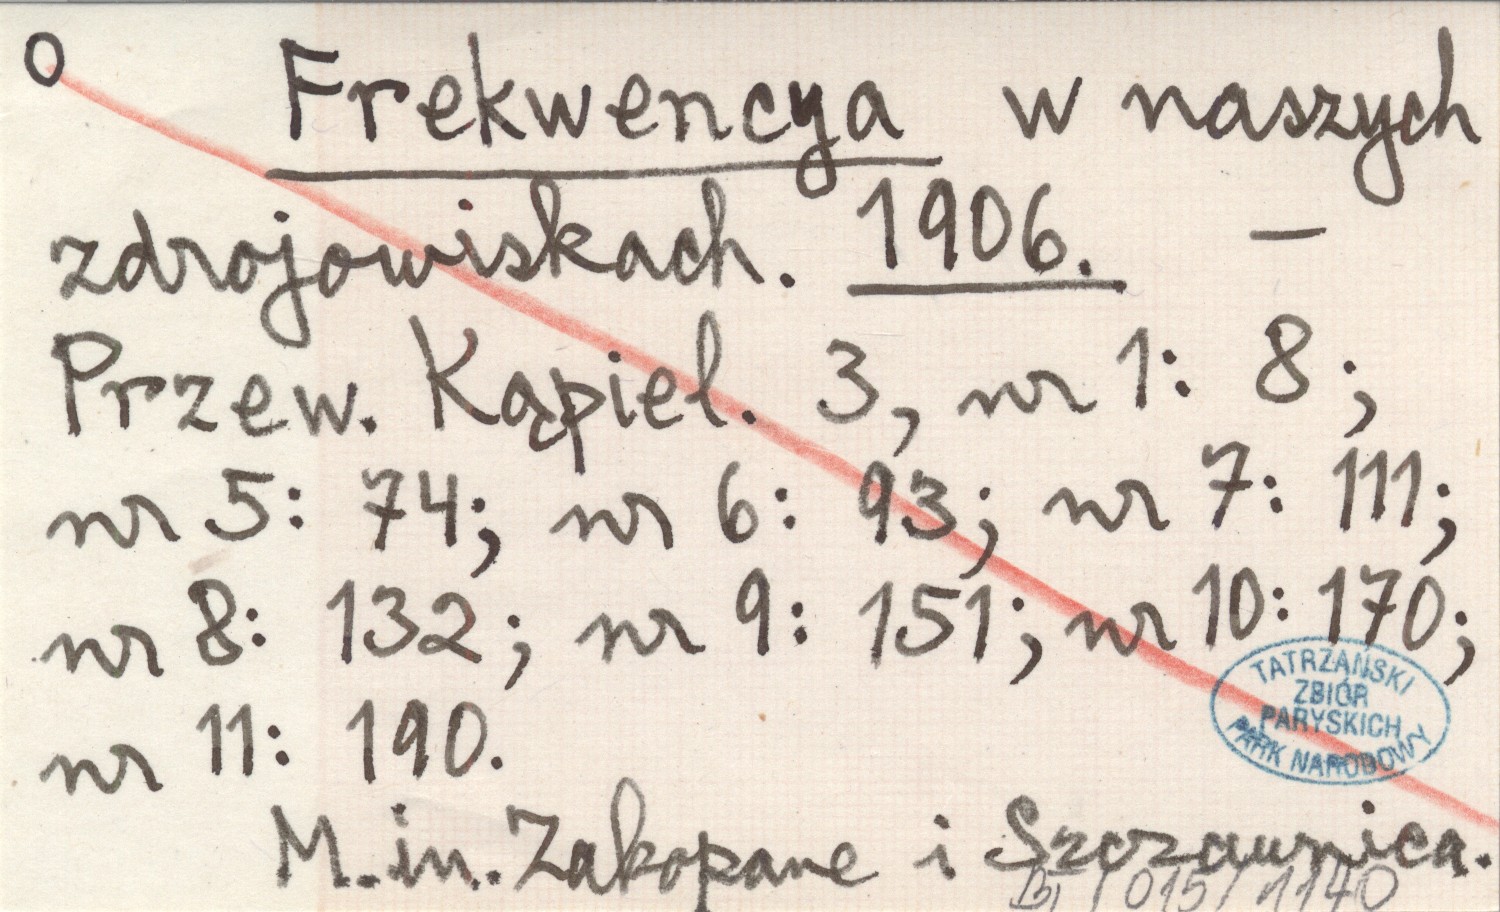 O Frekwencya w naszych
zdrojowiskach. 1906. —
Przew. Kąpiel. 3, nr 1: 8;
nr 5: 74; nr 6: 93; nr 7: 111;
nr 8: 132; nr 9: 151; nr 10: 170;
nr 11: 190.
TATRZAŃSKI
ZBIÓR
PARYSKICH
PARK NARODOWY
M.in. Zakopane i Szczawnica.
B1/015/1140